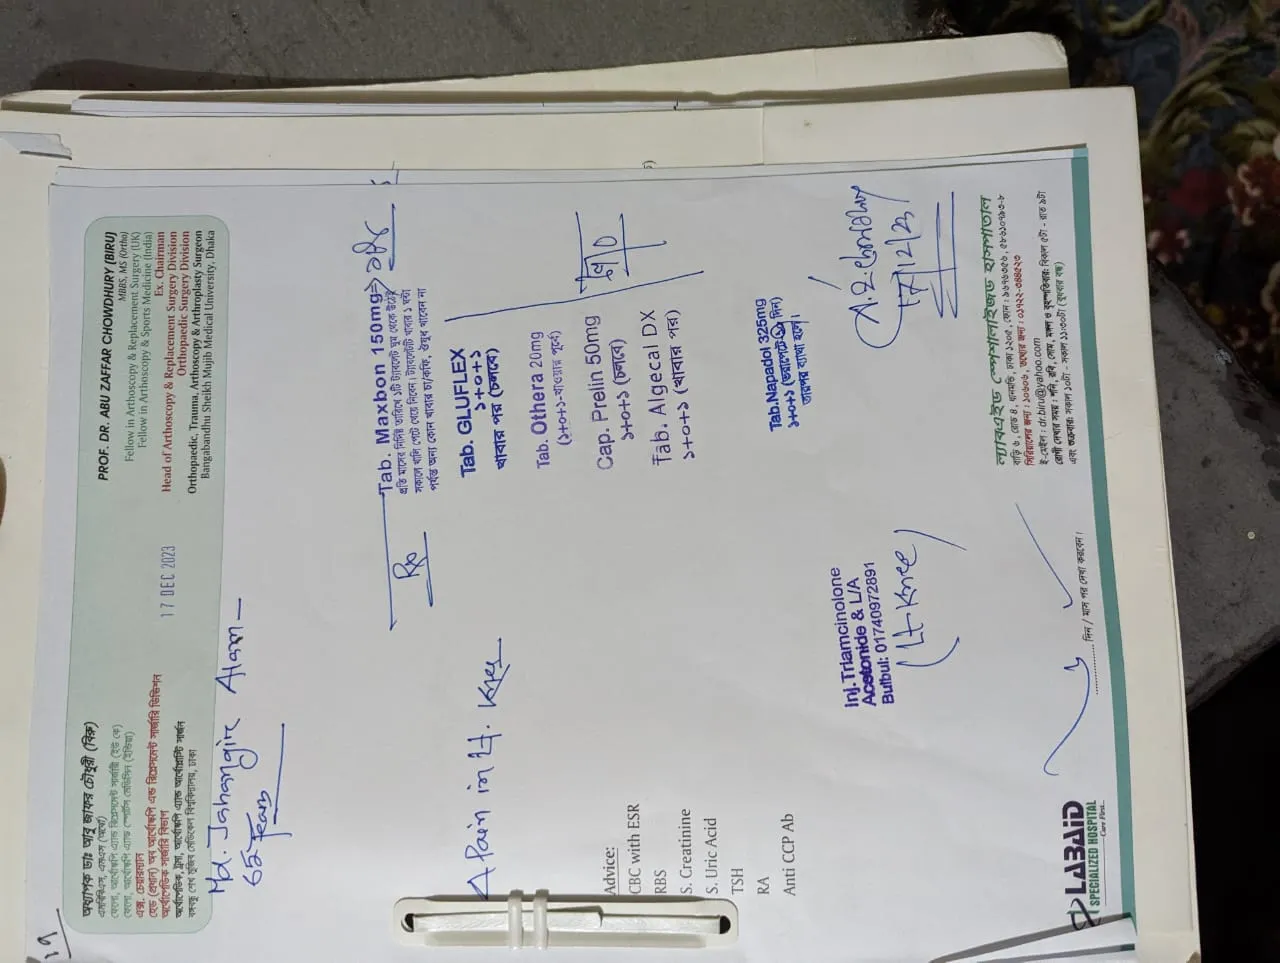 ১৭
অধ্যাপক ডাঃ আবু জাফর চৌধুরী (বিরু)
এমবিবিএস, এমএস (অর্থো)
ফেলো, আর্থোস্কপি এ্যান্ড রিপ্লেসমেন্ট সার্জারী (ইউ কে)
ফেলো, আর্থোস্কপি এ্যান্ড স্পোর্টস মেডিসিন (ইন্ডিয়া)
এক্স. চেয়ারম্যান
হেড (প্রধান) অব আর্থোস্কপি এন্ড রিপ্লেসমেন্ট সার্জারি ডিভিশন
অর্থোপেডিক সার্জারি বিভাগ
অর্থোপেডিক, ট্রমা, আর্থোস্কপি এ্যান্ড আর্থোপ্লাস্টি সার্জন
বঙ্গবন্ধু শেখ মুজিব মেডিকেল বিশ্ববিদ্যালয়, ঢাকা
17 DEC 2023
PROF. DR. ABU ZAFFAR CHOWDHURY (BIRU)
MBBS, MS (Ortho)
Fellow in Arthoscopy & Replacement Surgery (UK)
Fellow in Arthoscopy & Sports Medicine (India)
Ex. Chairman
Head of Arthoscopy & Replacement Surgery Division
Orthopaedic Surgery Division
Orthopaedic, Trauma, Arthoscopy & Arthroplasty Surgeon
Bangabandhu Sheikh Mujib Medical University, Dhaka
Md. Jahangir Alam
65 Years
Pain in Lt. Knee
Advice:
CBC with ESR
RBS
S. Creatinine
S. Uric Acid
TSH
RA
Anti CCP Ab
Rx
Tab. Maxbon 150mg
প্রতি মাসের নির্দিষ্ট তারিখে ১টি ট্যাবলেট ঘুম থেকে উঠেই
সকালে খালি পেটে খেয়ে নিবেন। ট্যাবলেটটি খাবার ১ ঘন্টা
পর্যন্ত অন্য কোন খাবার চা/কফি, ঔষুধ খাবেন না
Tab. GLUFLEX
১+০+১
খাবার পর (চলবে)
Tab. Othera 20mg
(১+০+১-খাওয়ার পূর্বে)
Cap. Prelin 50mg
১+০+১ (চলবে)
Tab. Algecal DX
১+০+১ (খাবার পর)
Tab.Napadol 325mg
১+০+১ (ভরাপেটে দিন)
তারপর ব্যাথা হলে।
Inj.Triamcinolone
Acetonide & L/A
Bulbul: 01740972891
(Lt Knee)
17/12/23
LABAID
SPECIALIZED HOSPITAL
Care First
দিন / মাস পর দেখা করবেন।
ল্যাবএইড স্পেশালাইজড হাসপাতাল
বাড়ি ৬, রোড ৪, ধানমন্ডি, ঢাকা ১২০৫, ফোন : ৯৬৭৬৩৫৬, ৫৮৬১০৭৯৩-৮
সিরিয়ালের জন্য : ১০৬০৬, তথ্যের জন্য : ০১৭২২-০৪৪৫২৩
ই-মেইল : dr.biru@yahoo.com
রোগী দেখার সময় : শনি, রবি, সোম, মঙ্গল ও বৃহস্পতিবার: বিকাল ৫টা - রাত ৯টা
এবং শুক্রবার: সকাল ১০টা - সকাল ১১:৩০টা (বুধবার বন্ধ)